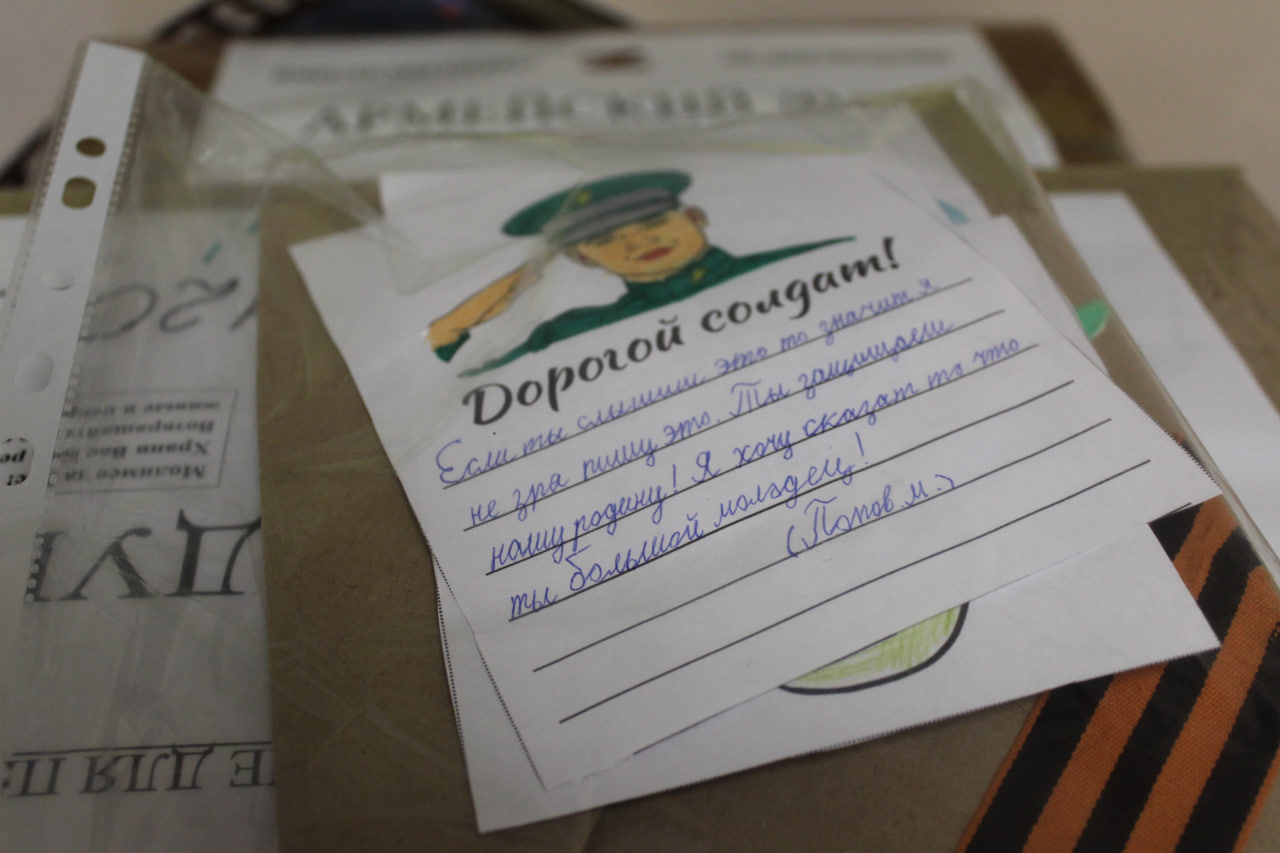 АРМЕЙСКИЙ
Дорогой солдат!
Если ты слышиш это то значит я
не зря пишу это. Ты защищаеш
нашу родину! Я хочу сказат то что
ты большой молодец!
(Попов м.)
Молимся за
Храни Вас Бог
Возвращайтесь
живые и
ДУ
Е ДЛЯ П